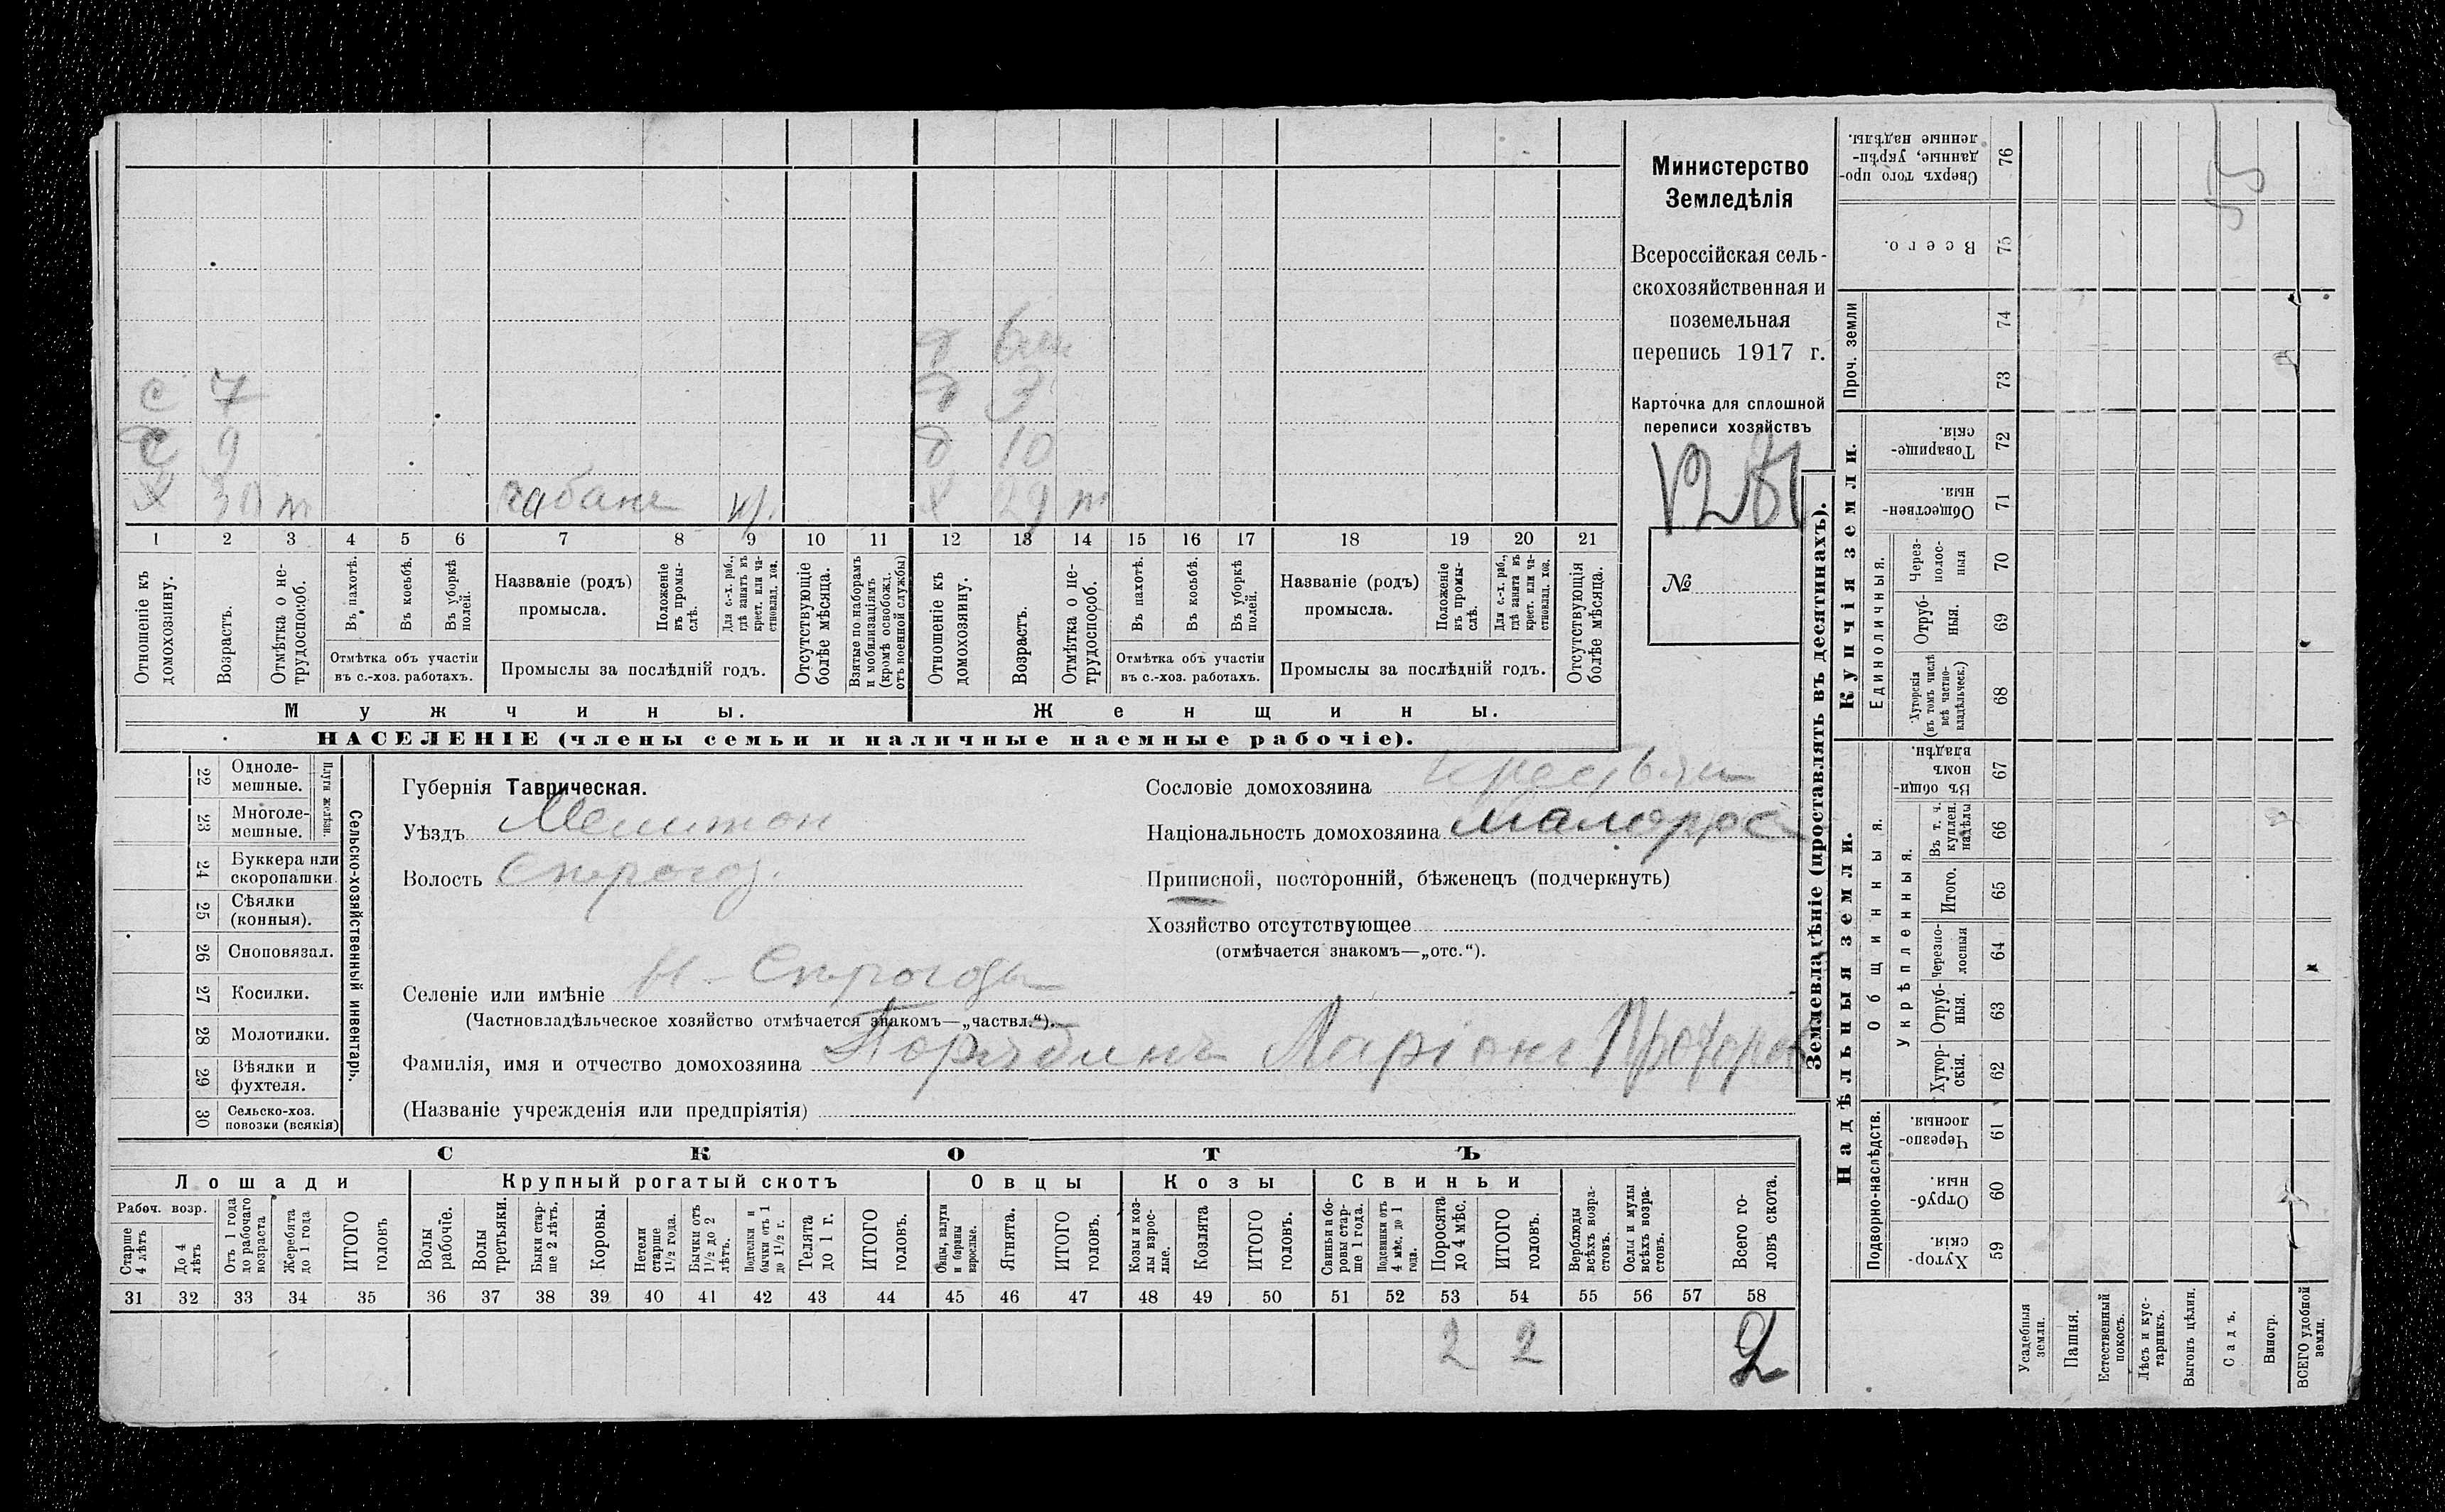 Министерство
Земледѣлія
Всероссійская сель-
скохозяйственная и
поземельная
перепись 1917 г.
Карточка для сплошной
переписи хозяйствъ
№
б
д 3
с 7
с 9
д 10
х 30 т чабан х 29 т
1 2 3 4 5 6 7 8 9 10 11 12 13 14 15 16 17 18 19 20 21
Отношеніе къ домохозяину.
Возрастъ.
Отмѣтка о не-трудоспособ.
Въ пахотѣ.
Въ косьбѣ.
Въ уборкѣ полей.
Отмѣтка объ участіи
въ с.-хоз. работахъ.
Названіе (родъ)
промысла.
Положеніе въ промы-слѣ.
Для с.-х. раб., гдѣ занятъ въ крест. или ча-стновлад. хоз.
Промыслы за послѣдній годъ.
Отсутствующіе болѣе мѣсяца.
Взятые по наборамъ и мобилизаціямъ (кромѣ освобожд. отъ военной службы)
Отношеніе къ домохозяину.
Возрастъ.
Отмѣтка о не-трудоспособ.
Въ пахотѣ.
Въ косьбѣ.
Въ уборкѣ полей.
Отмѣтка объ участіи
въ с.-хоз. работахъ.
Названіе (родъ)
промысла.
Положеніе въ промы-слѣ.
Для с.-х. раб., гдѣ занята въ крест. или ча-стновлад. хоз.
Промыслы за послѣдній годъ.
Отсутствующія болѣе мѣсяца.
Мужчины.
Женщины.
НАСЕЛЕНІЕ (члены семьи и наличные наемные рабочіе).
22 Одноле-мешные.
23 Многоле-мешные.
Плуги желѣзн.
24 Буккера или скоропашки.
25 Сѣялки (конныя).
26 Сноповязал.
27 Косилки.
28 Молотилки.
29 Вѣялки и фухтеля.
30 Сельско-хоз. повозки (всякія)
Сельско-хозяйственный инвентарь.
Губернія Таврическая.
Уѣздъ Мелитоп
Волость Сѣрогоз.
Селеніе или имѣніе Н-Сѣрогозы
(Частновладѣльческое хозяйство отмѣчается знакомъ—„частвл.“).
Фамилія, имя и отчество домохозяина Ларіон Прохоров
(Названіе учрежденія или предпріятія)
Сословіе домохозяина крестьян
Національность домохозяина малорос
Приписной, посторонній, бѣженецъ (подчеркнуть)
Хозяйство отсутствующее
(отмѣчается знакомъ—„отс.“).
СКОТЪ
Лошади
Крупный рогатый скотъ
Овцы
Козы
Свиньи
Рабоч. возр.
Старше 4 лѣтъ
До 4 лѣтъ
Отъ 1 года до рабочаго возраста
Жеребята до 1 года
ИТОГО головъ
Волы рабочіе.
Волы третьяки.
Быки стар-ше 2 лѣтъ.
Коровы.
Нетели старше 1½ года.
Бычки отъ 1½ до 2 лѣтъ.
Подтелки и бычки отъ 1 до 1½ г.
Телята до 1 г.
ИТОГО головъ.
Овцы, валухи и бараны взрослые.
Ягнята.
ИТОГО головъ.
Козы и коз-лы взрос-лые.
Козлята
ИТОГО головъ.
Свиньи и бо-ровы стар-ше 1 года.
Подсвинки отъ 4 мѣс. до 1 года.
Поросята до 4 мѣс.
ИТОГО головъ.
Верблюды всѣхъ возра-стовъ.
Ослы и мулы всѣхъ возра-стовъ.
Всего го-ловъ скота.
31 32 33 34 35 36 37 38 39 40 41 42 43 44 45 46 47 48 49 50 51 52 53 54 55 56 57 58
2 2 2
Землевладѣніе (проставлять въ десятинахъ).
Надѣльныя земли.
Купчія земли.
Проч. земли
Подворно-наслѣдств.
Общинныя.
Укрѣпленныя.
Единоличныя.
Сверхъ того про-данные, укрѣп-ленные надѣлы. 76
Всего. 75
74
73
Товарище-скія. 72
Обществен-ныя. 71
Через-полос-ныя 70
Отруб-ныя. 69
Хуторскія (въ томъ числѣ всѣ частно-владѣльческ.) 68
Въ общи-номъ владѣн. 67
Въ т. ч. куплен. надѣлы 66
Итого. 65
Черезпо-лосныя 64
Отруб-ныя. 63
Хутор-скія. 62
Черезпо-лосныя. 61
Отруб-ныя. 60
Хутор-скія. 59
Усадебныя земли.
Пашня.
Естественный покосъ.
Лѣсъ и кус-тарникъ.
Выгонъ цѣлин.
Садъ.
Виногр.
ВСЕГО удобной земли.